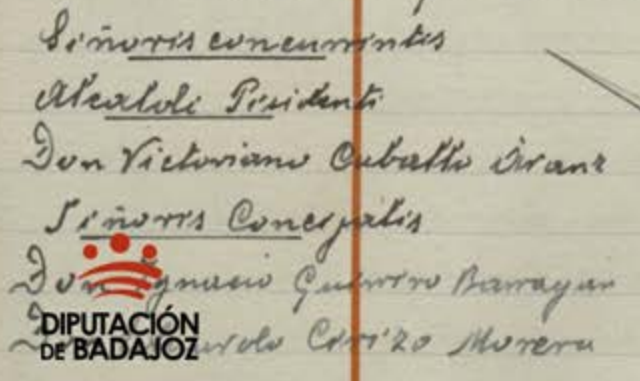 Señores concurrentes
Alcalde Presidente
Don Victoriano Caballo Aranz
Señores Concejales
Don Ignacio Guerrero Barragan
Cerizo Morera
DIPUTACIÓN
DE BADAJOZ